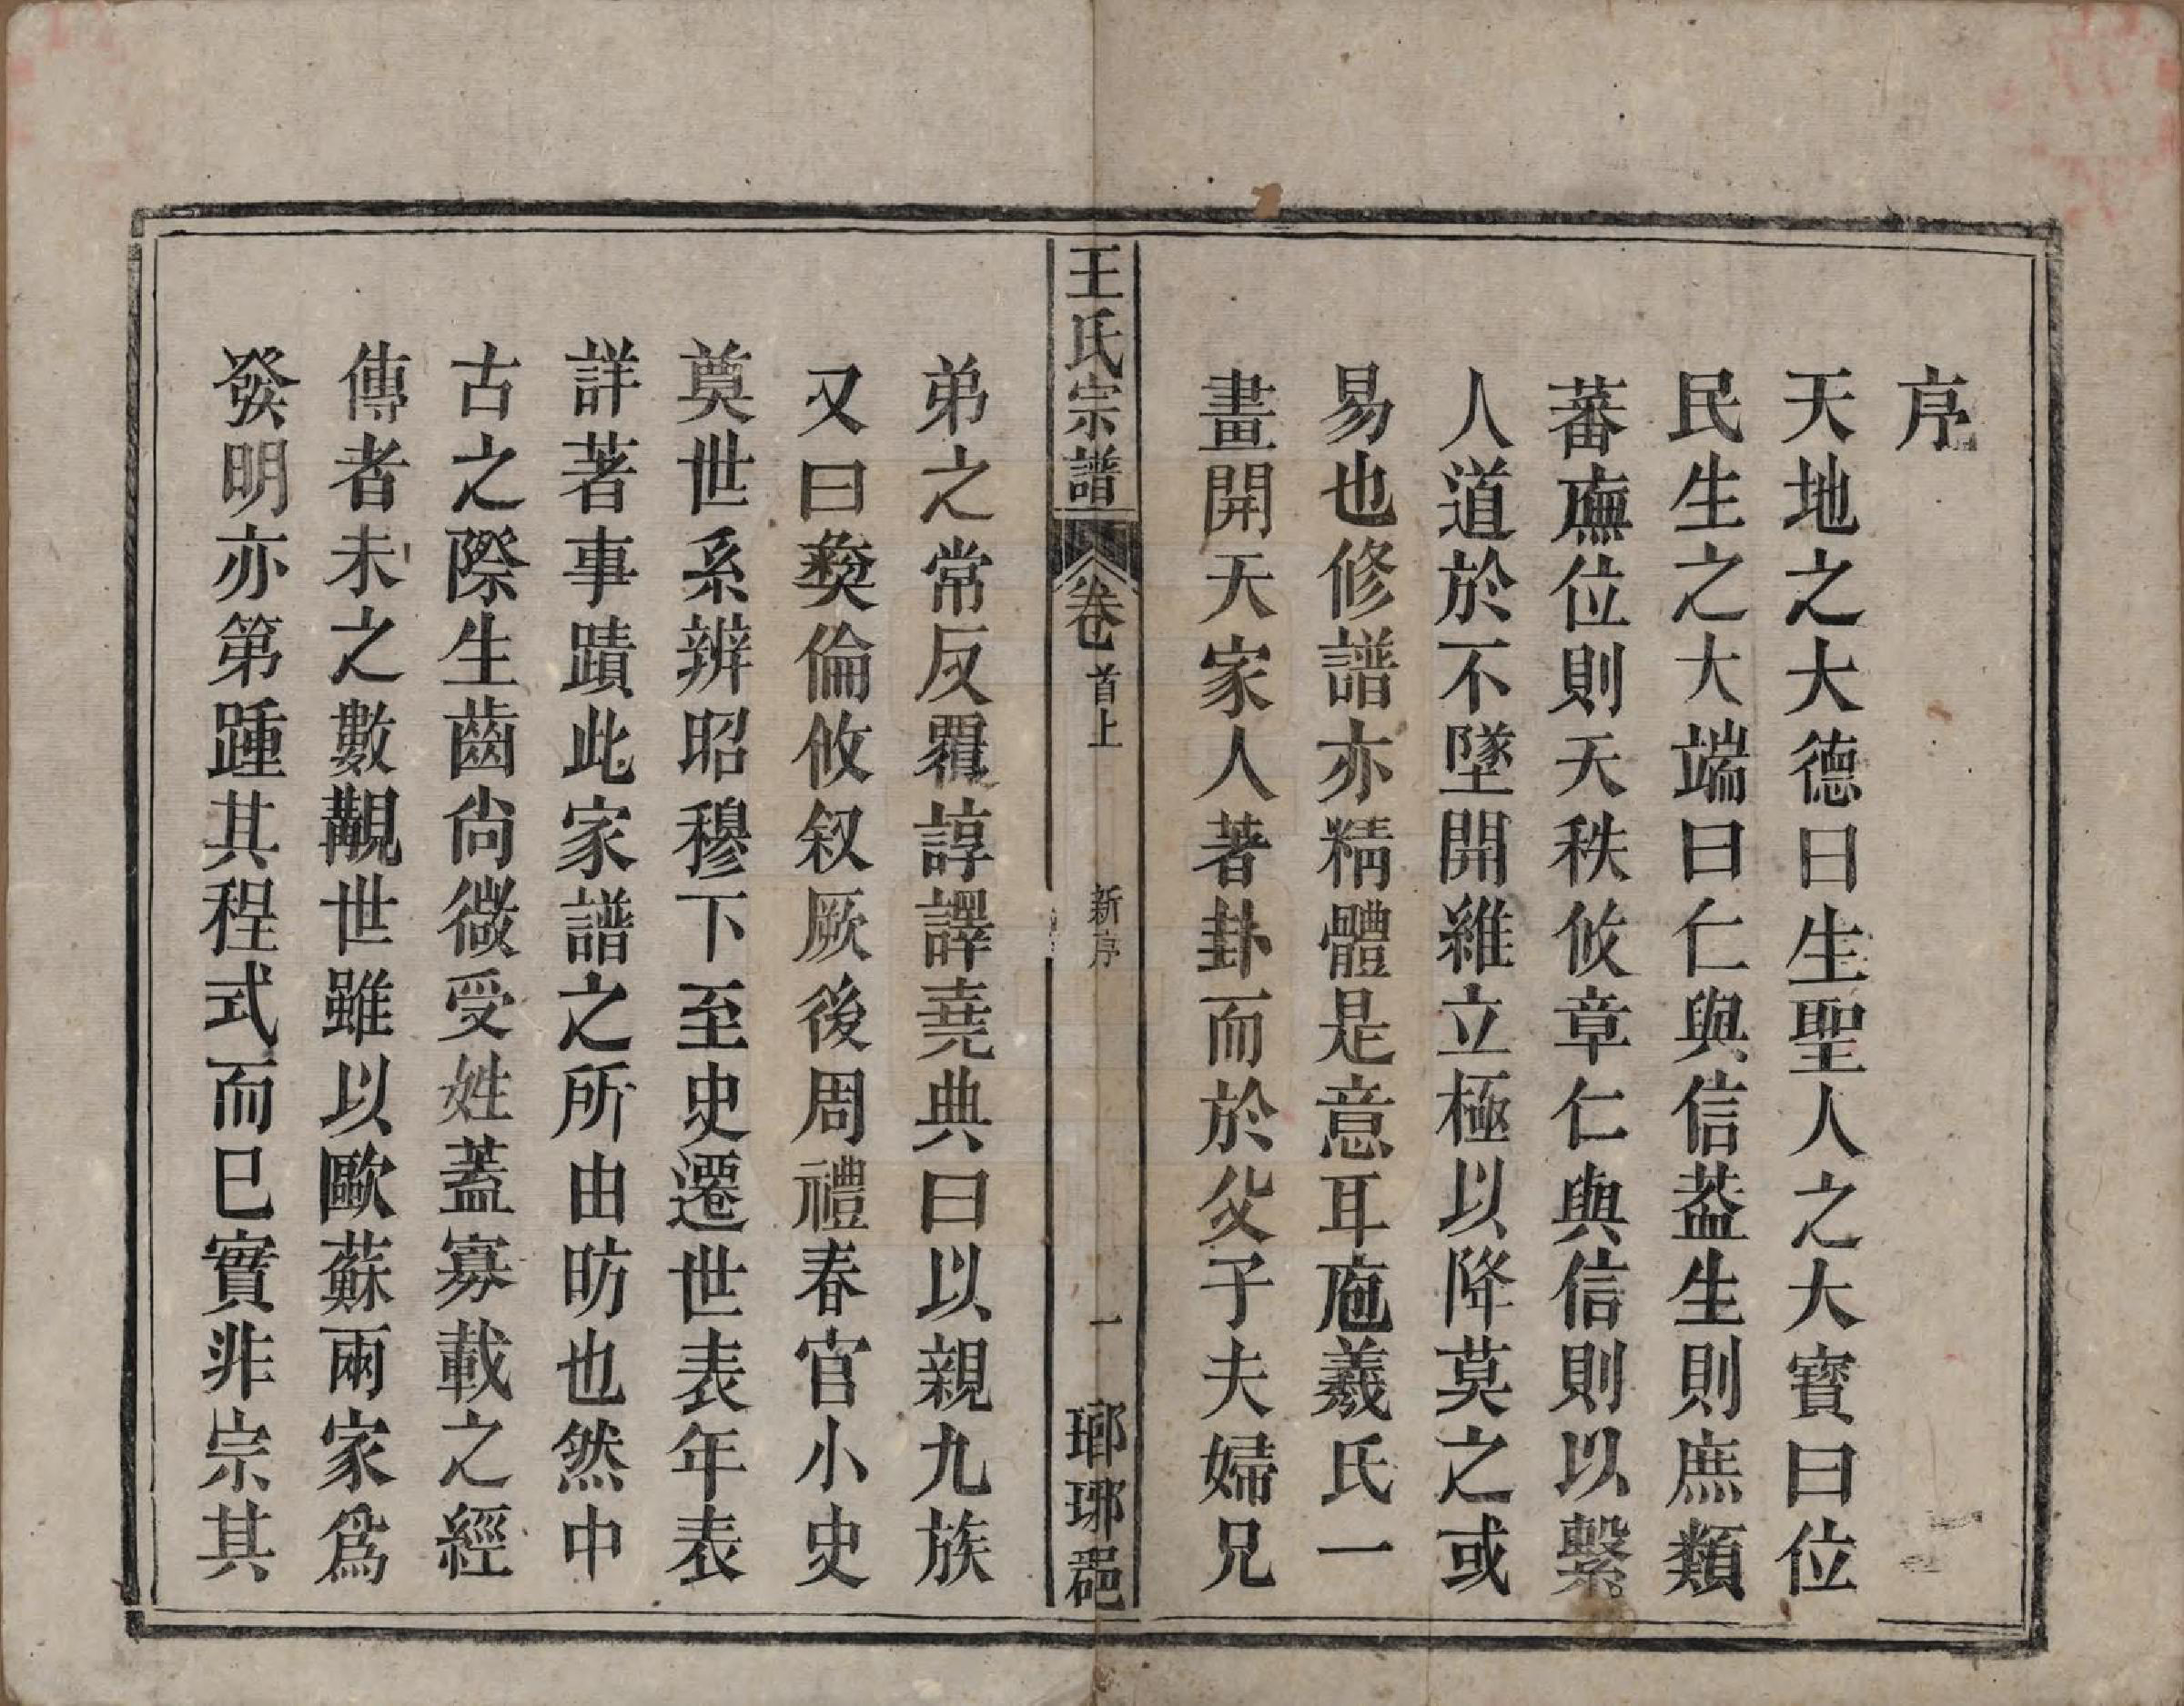 序
天地之大德曰生聖人之大寶曰位
民生之大端曰仁與信葢生則庶類
蕃廡位則天秩攸章仁與信則以繫
人道於不墜開維立極以降莫之或
易也修譜亦精體是意耳庖羲氏一
畫開天家人著卦而於父子夫婦兄
王氏宗譜 卷首上 新序 一 瑯琊郡
弟之常反覆諄譯堯典曰以親九族
又曰彝倫攸叙厥後周禮春官小史
奠世系辨昭穆下至史遷世表年表
詳著事蹟此家譜之所由昉也然中
古之際生齒尙微受姓蓋寡載之經
傳者未之數覯世雖以歐蘇兩家爲
發明亦第踵其程式而已實非宗其